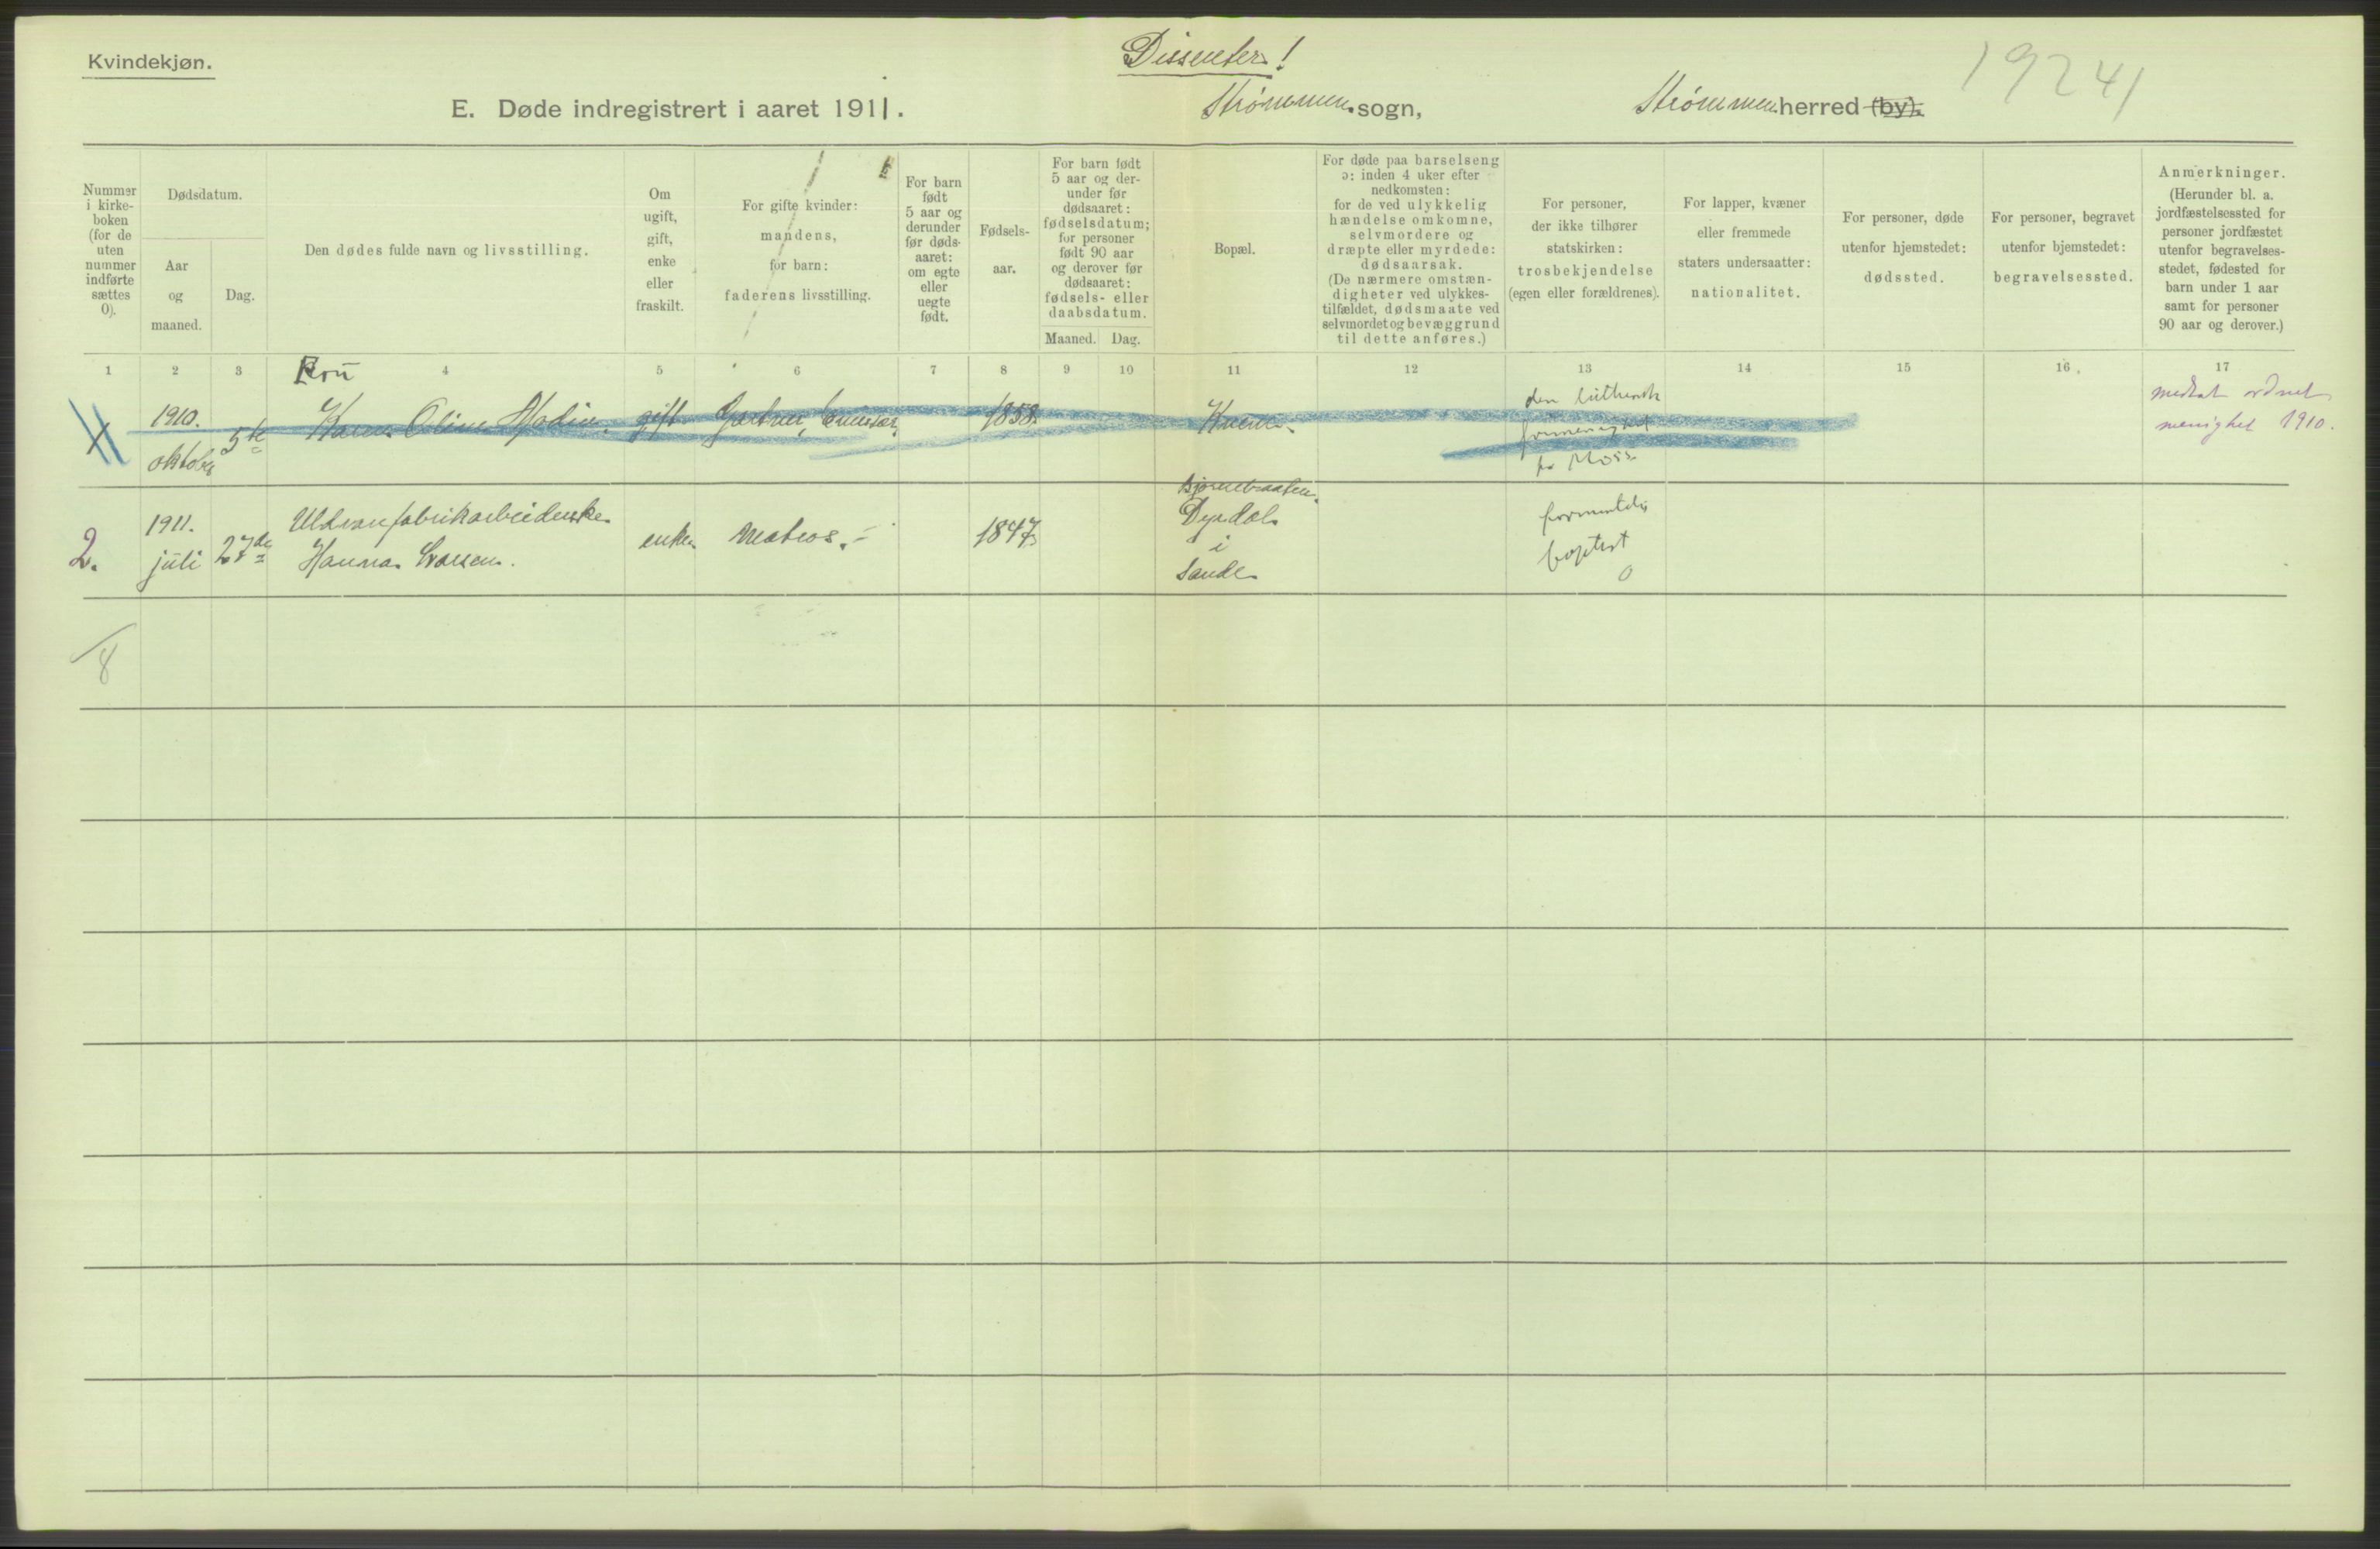 Kvindekjøn.
Dissenter!
19241
E. Døde indregistrert i aaret 1911.
Strømmen sogn,
Strømmen herred (by).
Nummer
i kirke-
boken
(for de
uten
nummer
indførte
sættes
0).
Dødsdatum.
Aar
og
maaned.
Dag.
Den dødes fulde navn og livsstilling.
Om
ugift,
gift,
enke
eller
fraskilt.
For gifte kvinder:
mandens,
for barn:
faderens livsstilling.
For barn
født
5 aar og
derunder
før døds-
aaret:
om egte
eller
uegte
født.
Fødsels-
aar.
For barn født
5 aar og der-
under før
dødsaaret:
fødselsdatum;
for personer
født 90 aar
og derover før
dødsaaret:
fødsels- eller
daabsdatum.
Maaned. Dag.
Bopæl.
For døde paa barselseng
ɔ: inden 4 uker efter
nedkomsten:
for de ved ulykkelig
hændelse omkomne,
selvmordere og
dræpte eller myrdede:
dødsaarsak.
(De nærmere omstæn-
digheter ved ulykkes-
tilfældet, dødsmaate ved
selvmordet og bevæggrund
til dette anføres.)
For personer,
der ikke tilhører
statskirken:
trosbekjendelse
(egen eller forældrenes).
For lapper, kvæner
eller fremmede
staters undersaatter:
nationalitet.
For personer, døde
utenfor hjemstedet:
dødssted.
For personer, begravet
utenfor hjemstedet:
begravelsessted.
Anmerkninger.
(Herunder bl. a.
jordfæstelsessted for
personer jordfæstet
utenfor begravelses-
stedet, fødested for
barn under 1 aar
samt for personer
90 aar og derover.)
1 2 3 4 5 6 7 8 9 10 11 12 13 14 15 16 17
1910.
oktober
5te
Karen Oline Modin.
gift
Gartner,
1858.
den luthersk
frimenighed
Moss
ordnet
menighet 1910.
2.
1911.
juli
27de
Uldvarefabrikarbeiderske
Hanna Larsen.
enke
Matros.
1847
Bjørnebraaten.
Dyrdal
i
Sande
formentlig
baptist
0
8